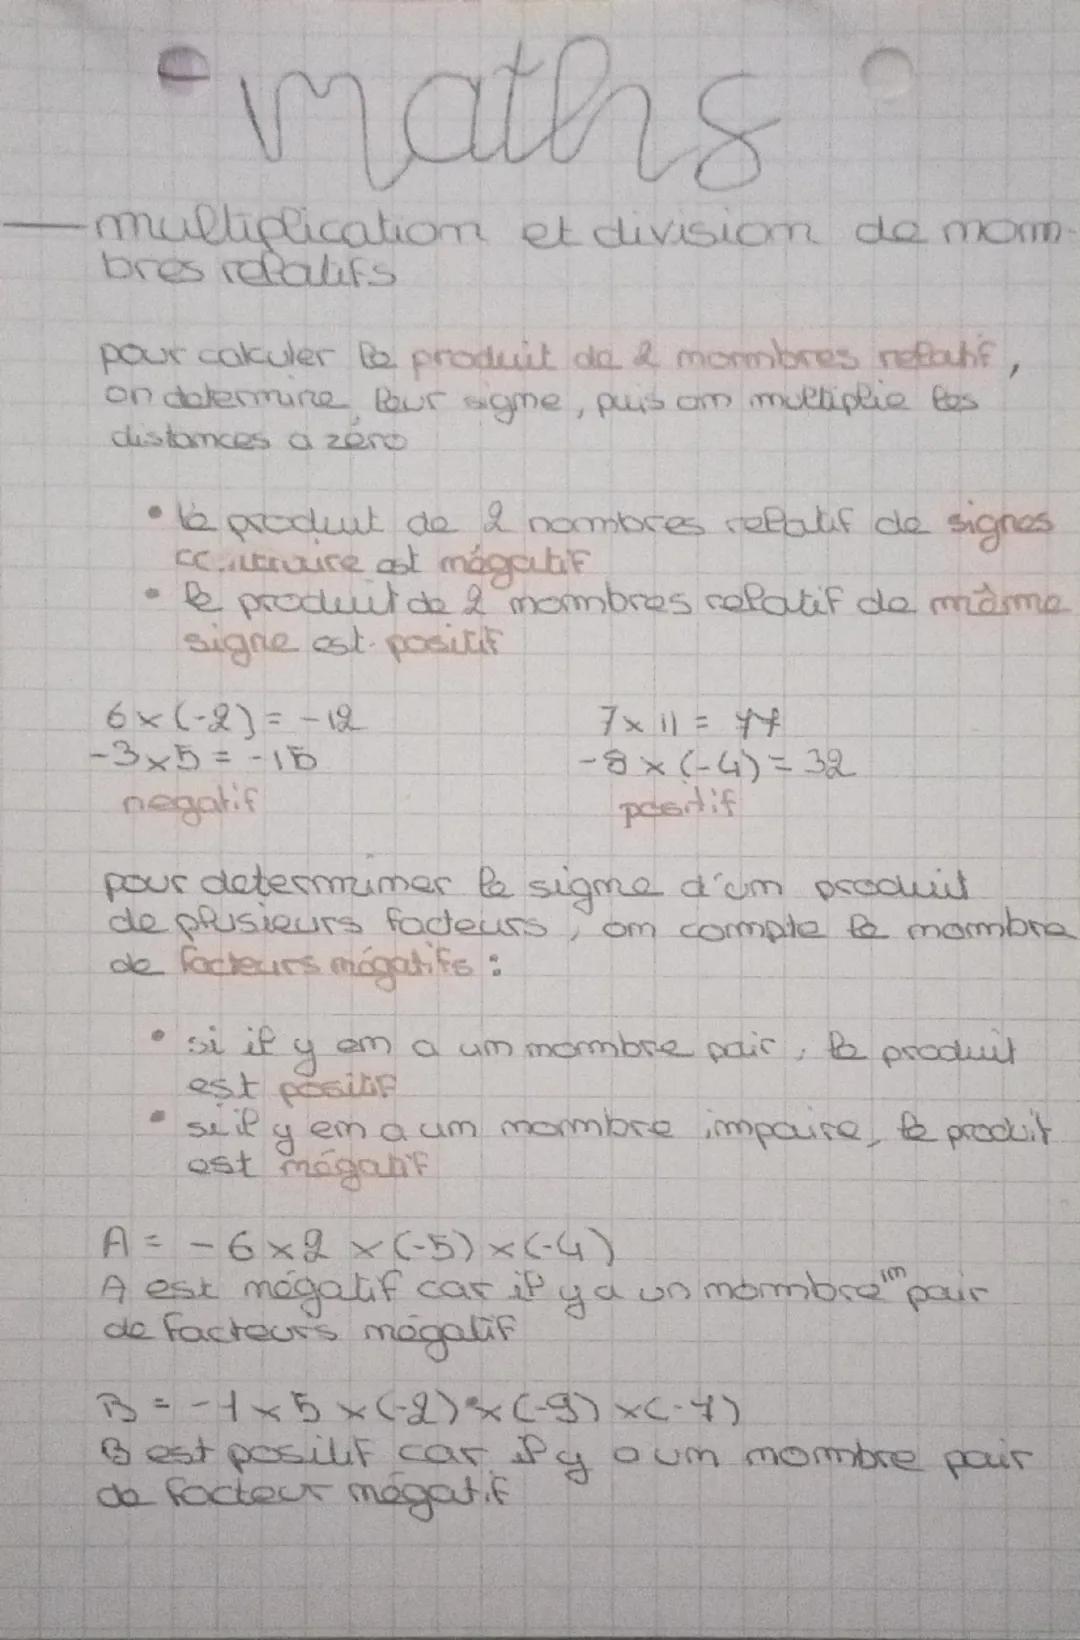 maths
multiplication et division de nom-
bres relatifs
pour calculer le produit de 2 nombres relatif,
on determine leur signe, puis on multiplie les
distances a zéro
• le produit de 2 nombres relatif de signes
contraire est négatif
• le produit de 2 nombres relatif de même
signe est positif
6 × (-2) = -12
-3 × 5 = -15
negatif
7 × 11 = 77
-8 × (-4) = 32
positif
pour determiner le signe d'un produit
de plusieurs facteurs, on compte le nombre
de facteurs négatifs :
• si il y en a un nombre pair, le produit
est positif
• si il y en a un nombre impaire, le produit
est négatif
A = -6 × 2 × (-5) × (-4)
A est négatif car il y a un nombre impair
de facteurs négatif
B = -1 × 5 × (-2) × (-9) × (-7)
B est positif car il y a un nombre pair
de facteur négatif